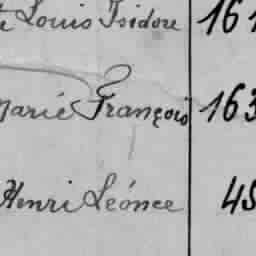 Louis Isidore 161
Marie François 163
Henri Leónce 45